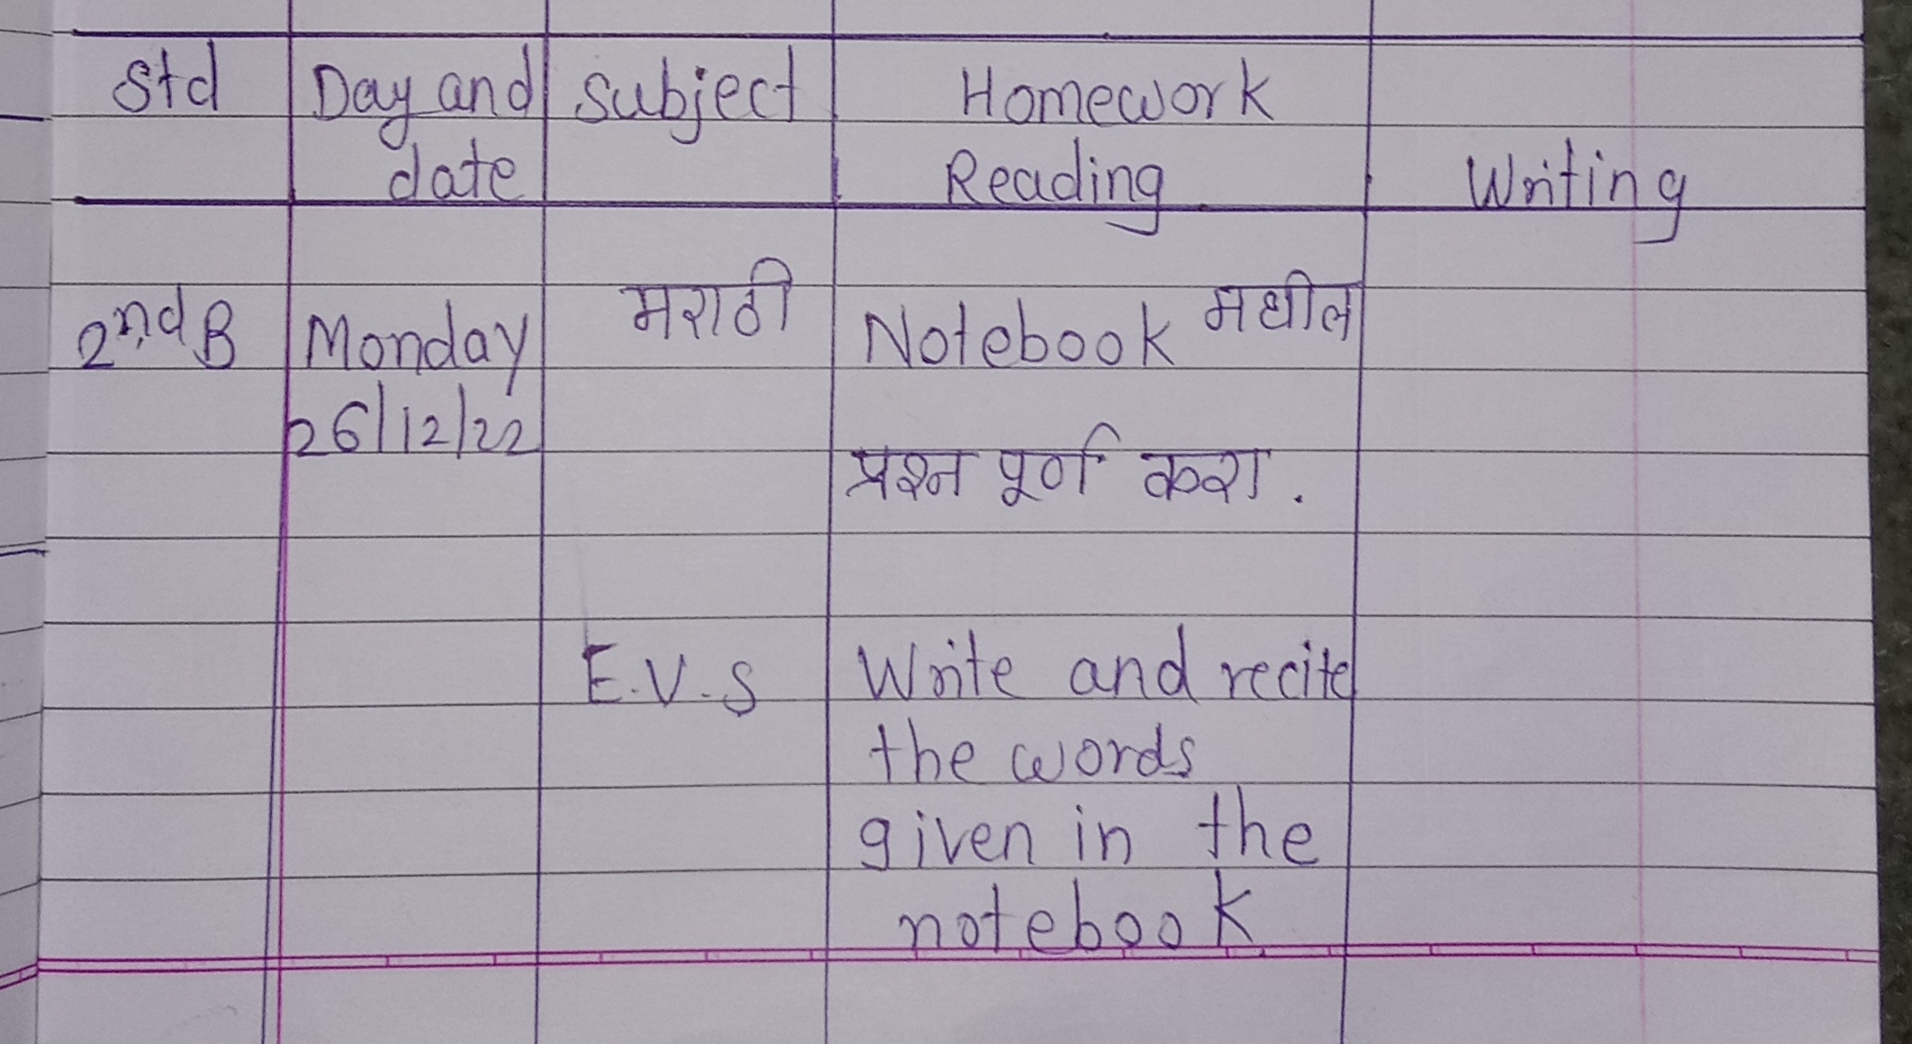 Std Day and subject Homework
date Reading Writing
2nd B Monday मराठी Notebook मधील
26/12/22
प्रश्न पूर्ण करा.
E.V.S Write and recite
the words
given in the
notebook